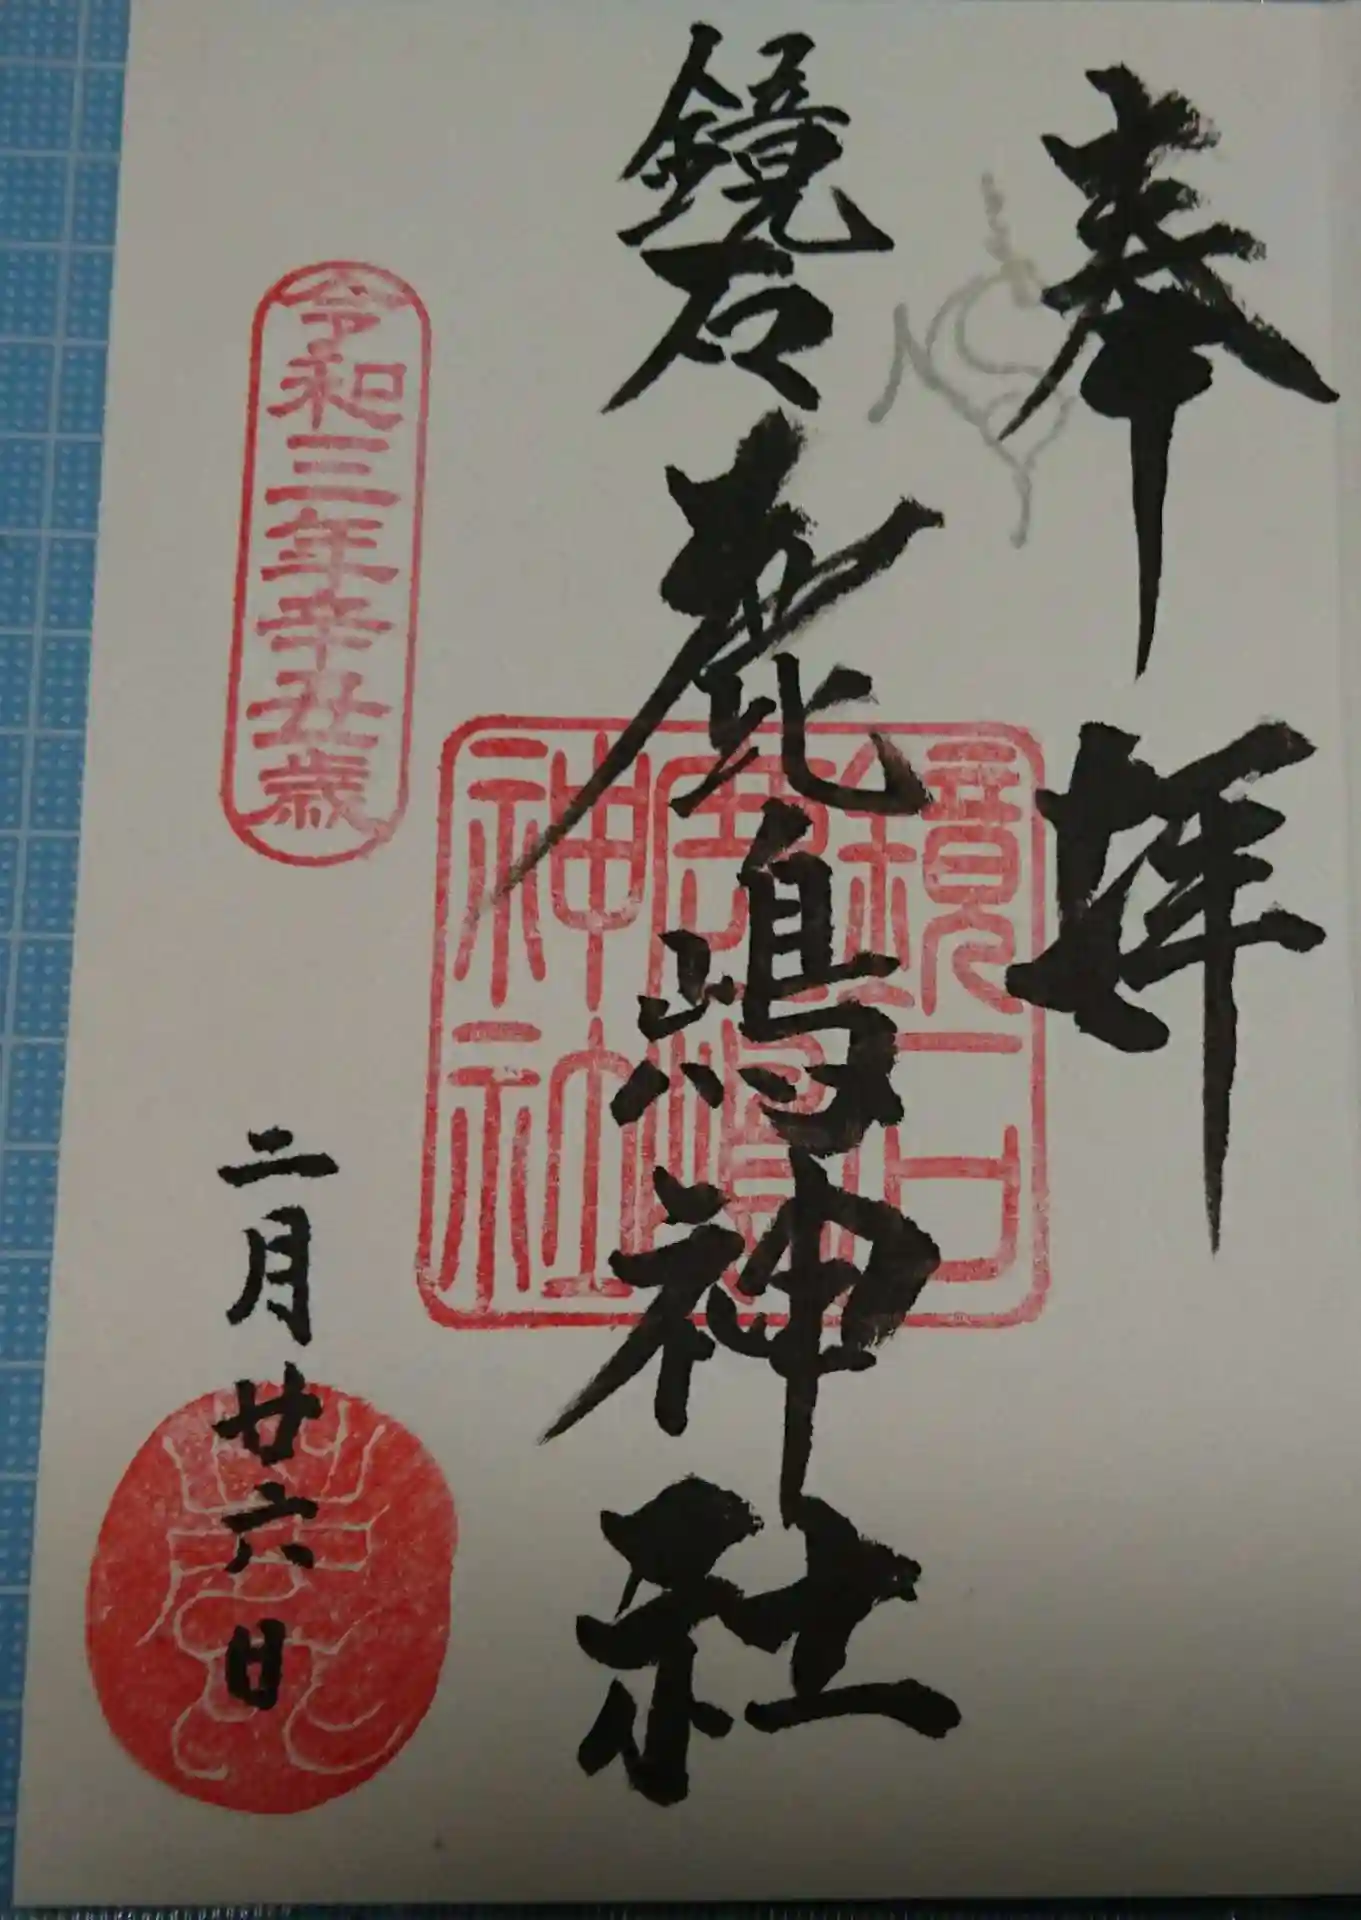 奉拝
鏡石鹿嶋神社
鏡石
鹿嶋
神社
令和三年辛丑歳
二月廿六日